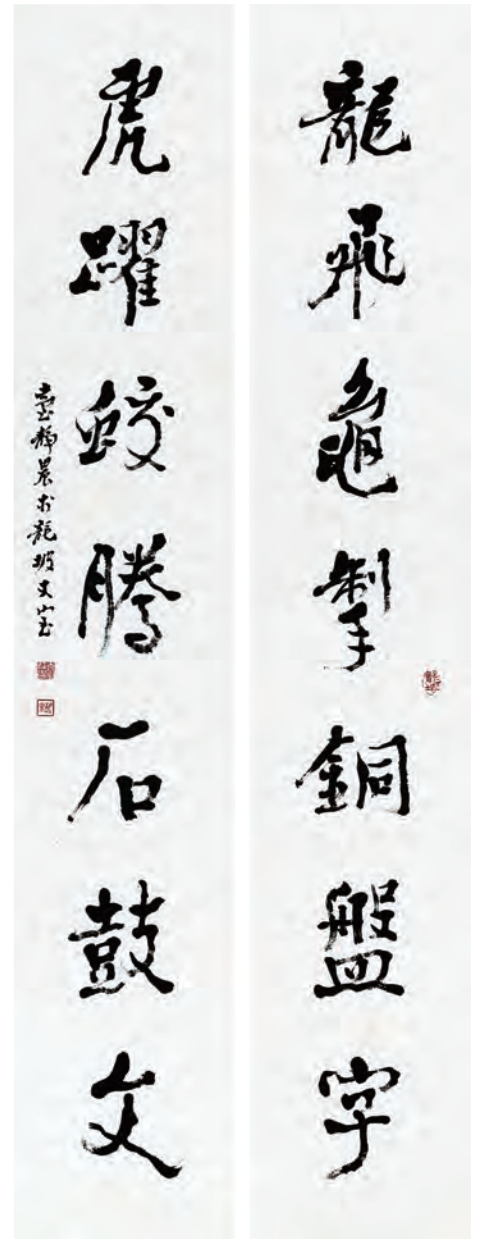 龍飛黿掣銅盤字
虎躍蛟騰石鼓文
臺靜農於龍坡丈室